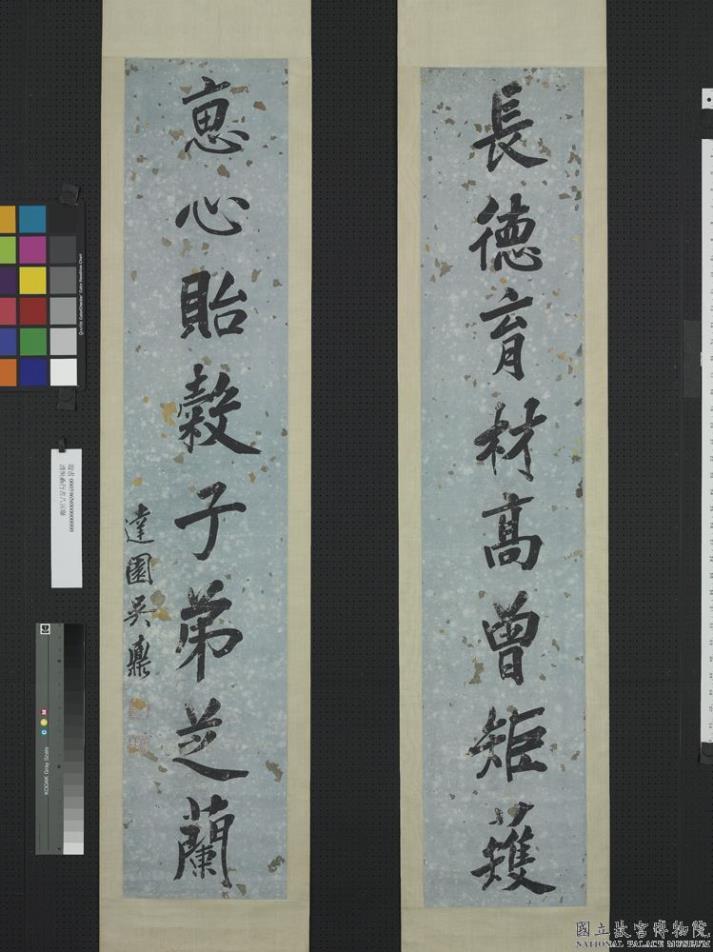 長德育材高曾矩矱
恵心貽穀子弟芝蘭
達園吳鼒
國立故宮博物院
NATIONAL PALACE MUSEUM